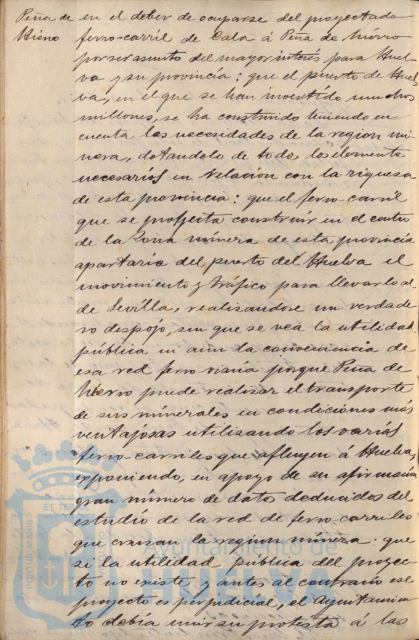 Peña de
Hierro
en el deber de ocuparse del proyectado
ferro-carril de Cala á Peña de hierro
por ser asunto del mayor interés para Huel
va y su provincia: que el puerto de Huel
va, en el que se han invertido muchos
millones, se ha construido teniendo en
cuenta las necesidades de la region mi
nera, dotandolo de todos los elementos
necesarios en relacion con la riqueza
de esta provincia: que el ferro-carril
que se proyecta construir en el centro
de la Zona minera de esta provincia
apartaria del puerto del Huelva el
movimiento y tráfico para llevarlo al
de Sevilla, realizandose un verdade
ro despojo, sin que se vea la utilidad
pública ni aun la conveniencia de
esa red ferro viaria porque Peña de
hierro puede realizar el transporte
de sus minerales en condiciones más
ventajosas utilizando los varios
ferro-carriles que afluyen á Huelva,
exponiendo, en apoyo de su afirmación
gran número de datos deducidos del
estudio de la red de ferro-carriles
que cruzan la region minera: que
si la utilidad pública del proyec
to no existe y antes al contrario ese
proyecto es perjudicial, el Ayuntamien
to debia unir su protesta á las
Ayuntamiento de
HUELVA